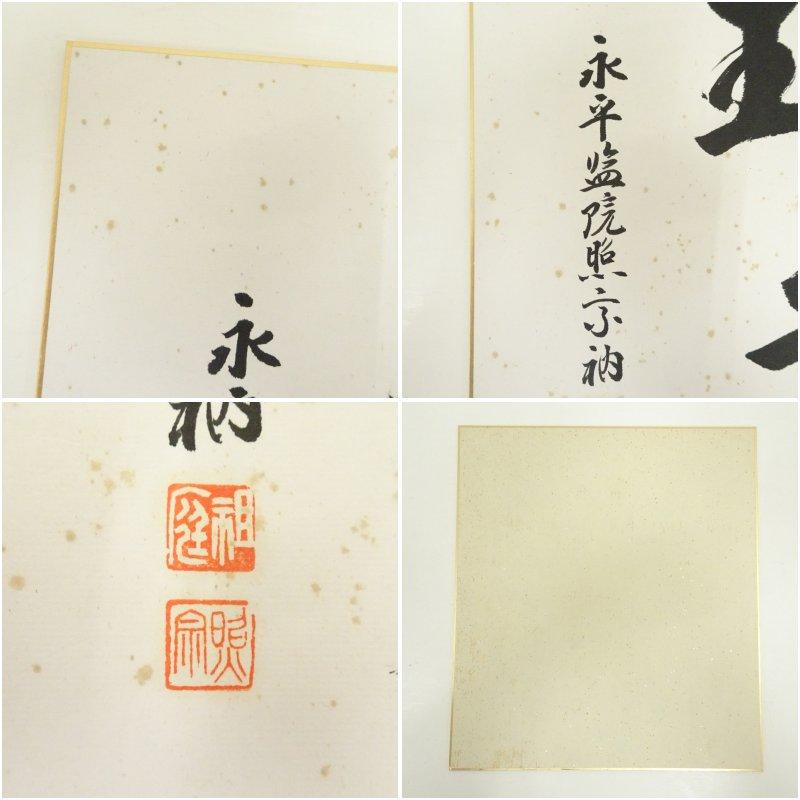 永
永平監院照宗衲
衲
祖庭
照宗